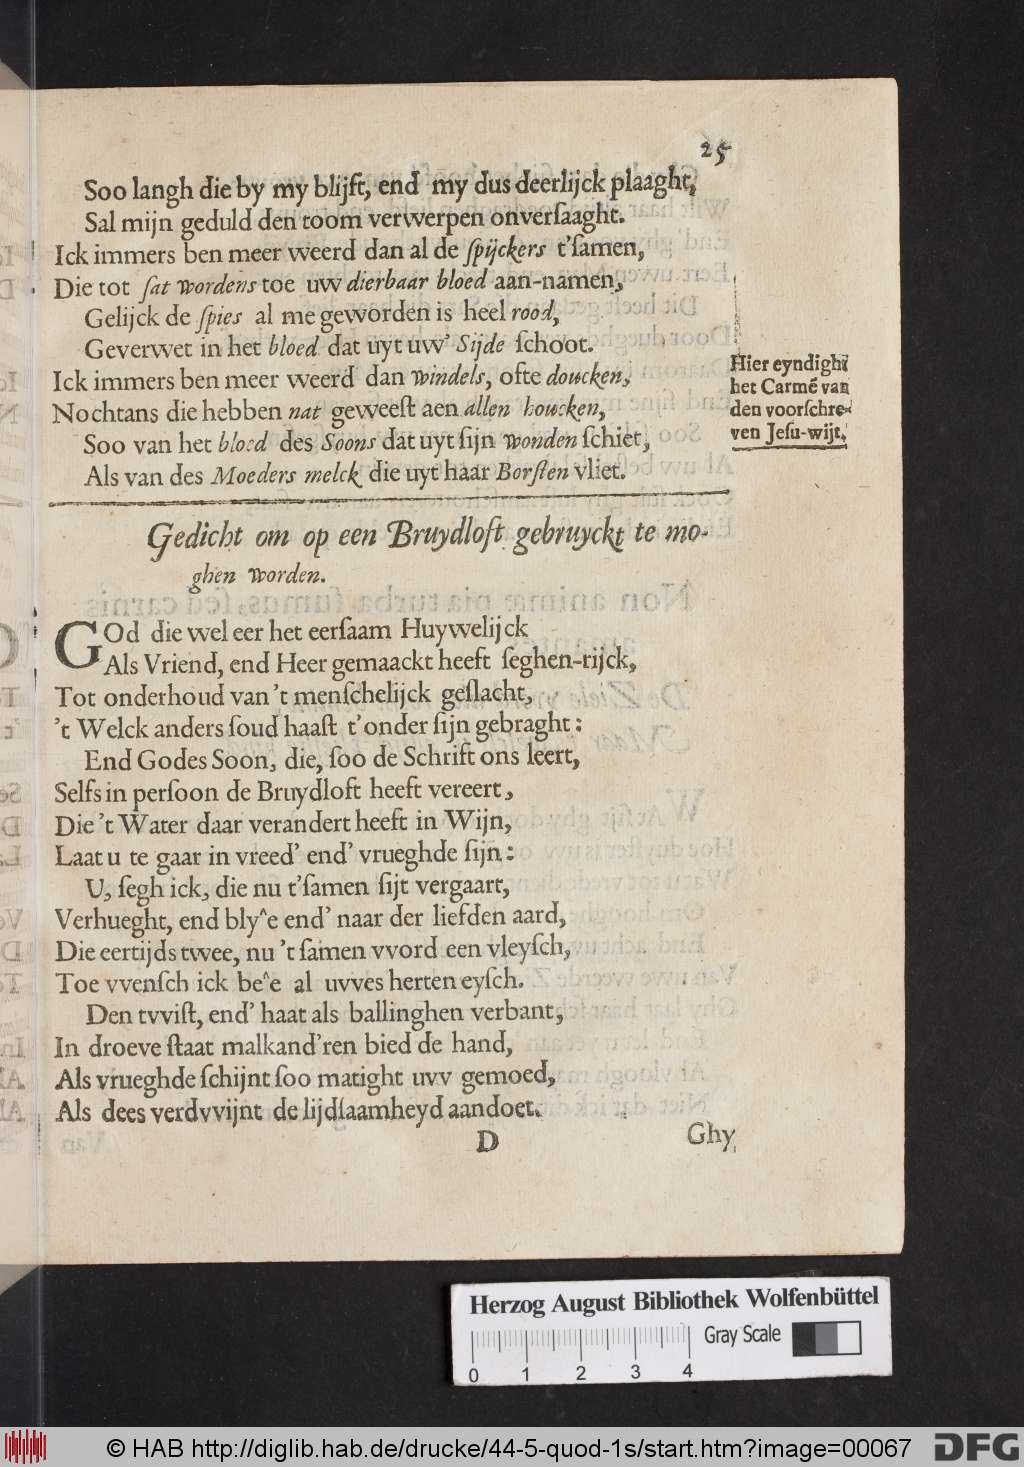 25
Soo langh die by my blijft, end my dus deerlijck plaaght,
Sal mijn geduld den toom verwerpen onverſaaght.
Ick immers ben meer weerd dan al de ſpijckers t'ſamen,
Die tot ſat wordens toe uw dierbaar bloed aan-namen,
Gelijck de ſpies al me geworden is heel rood,
Geverwet in het bloed dat uyt uw' Sijde ſchoot.
Ick immers ben meer weerd dan windels, ofte doucken,
Nochtans die hebben nat geweeſt aen allen houcken,
Soo van het bloed des Soons dat uyt ſijn wonden ſchiet,
Als van des Moeders melck die uyt haar Borſten vliet.
Hier eyndight
het Carmē van
den voorſchre-
ven Jeſu-wijt.
Gedicht om op een Bruydloft gebruyckt te mo-
ghen worden.
GOd die wel eer het eerſaam Huywelijck
Als Vriend, end Heer gemaackt heeft ſeghen-rijck,
Tot onderhoud van 't menſchelijck geſlacht,
't Welck anders ſoud haaſt t'onder ſijn gebraght:
End Godes Soon, die, ſoo de Schrift ons leert,
Selfs in perſoon de Bruydloft heeft vereert,
Die 't Water daar verandert heeft in Wijn,
Laat u te gaar in vreed' end' vrueghde ſijn:
U, ſegh ick, die nu t'ſamen ſijt vergaart,
Verhueght, end bly^e end' naar der liefden aard,
Die eertijds twee, nu 't ſamen vvord een vleyſch,
Toe vvenſch ick be^e al uvves herten eyſch.
Den tvviſt, end' haat als ballinghen verbant,
In droeve ſtaat malkand'ren bied de hand,
Als vrueghde ſchijnt ſoo matight uvv gemoed,
Als dees verdvvijnt de lijdſaamheyd aandoet.
D
Ghy
Herzog August Bibliothek Wolfenbüttel
Gray Scale
0 1 2 3 4
© HAB http://diglib.hab.de/drucke/44-5-quod-1s/start.htm?image=00067
DFG